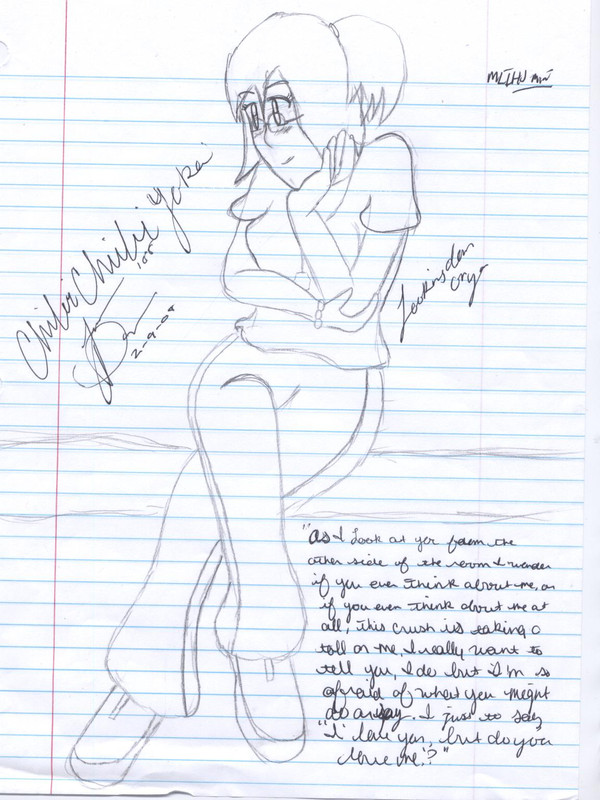 Chibi Chibi Yokai
2-9-09
"As I look at you from the
other side of the room I wonder
if you even think about me, or
if you even think about me at
all, this crush is taking a
toll on me, I really want to
tell you, I do but I'm so
afraid of what you meignt
do or say. I just to say
"I love you, but do you
love me?"